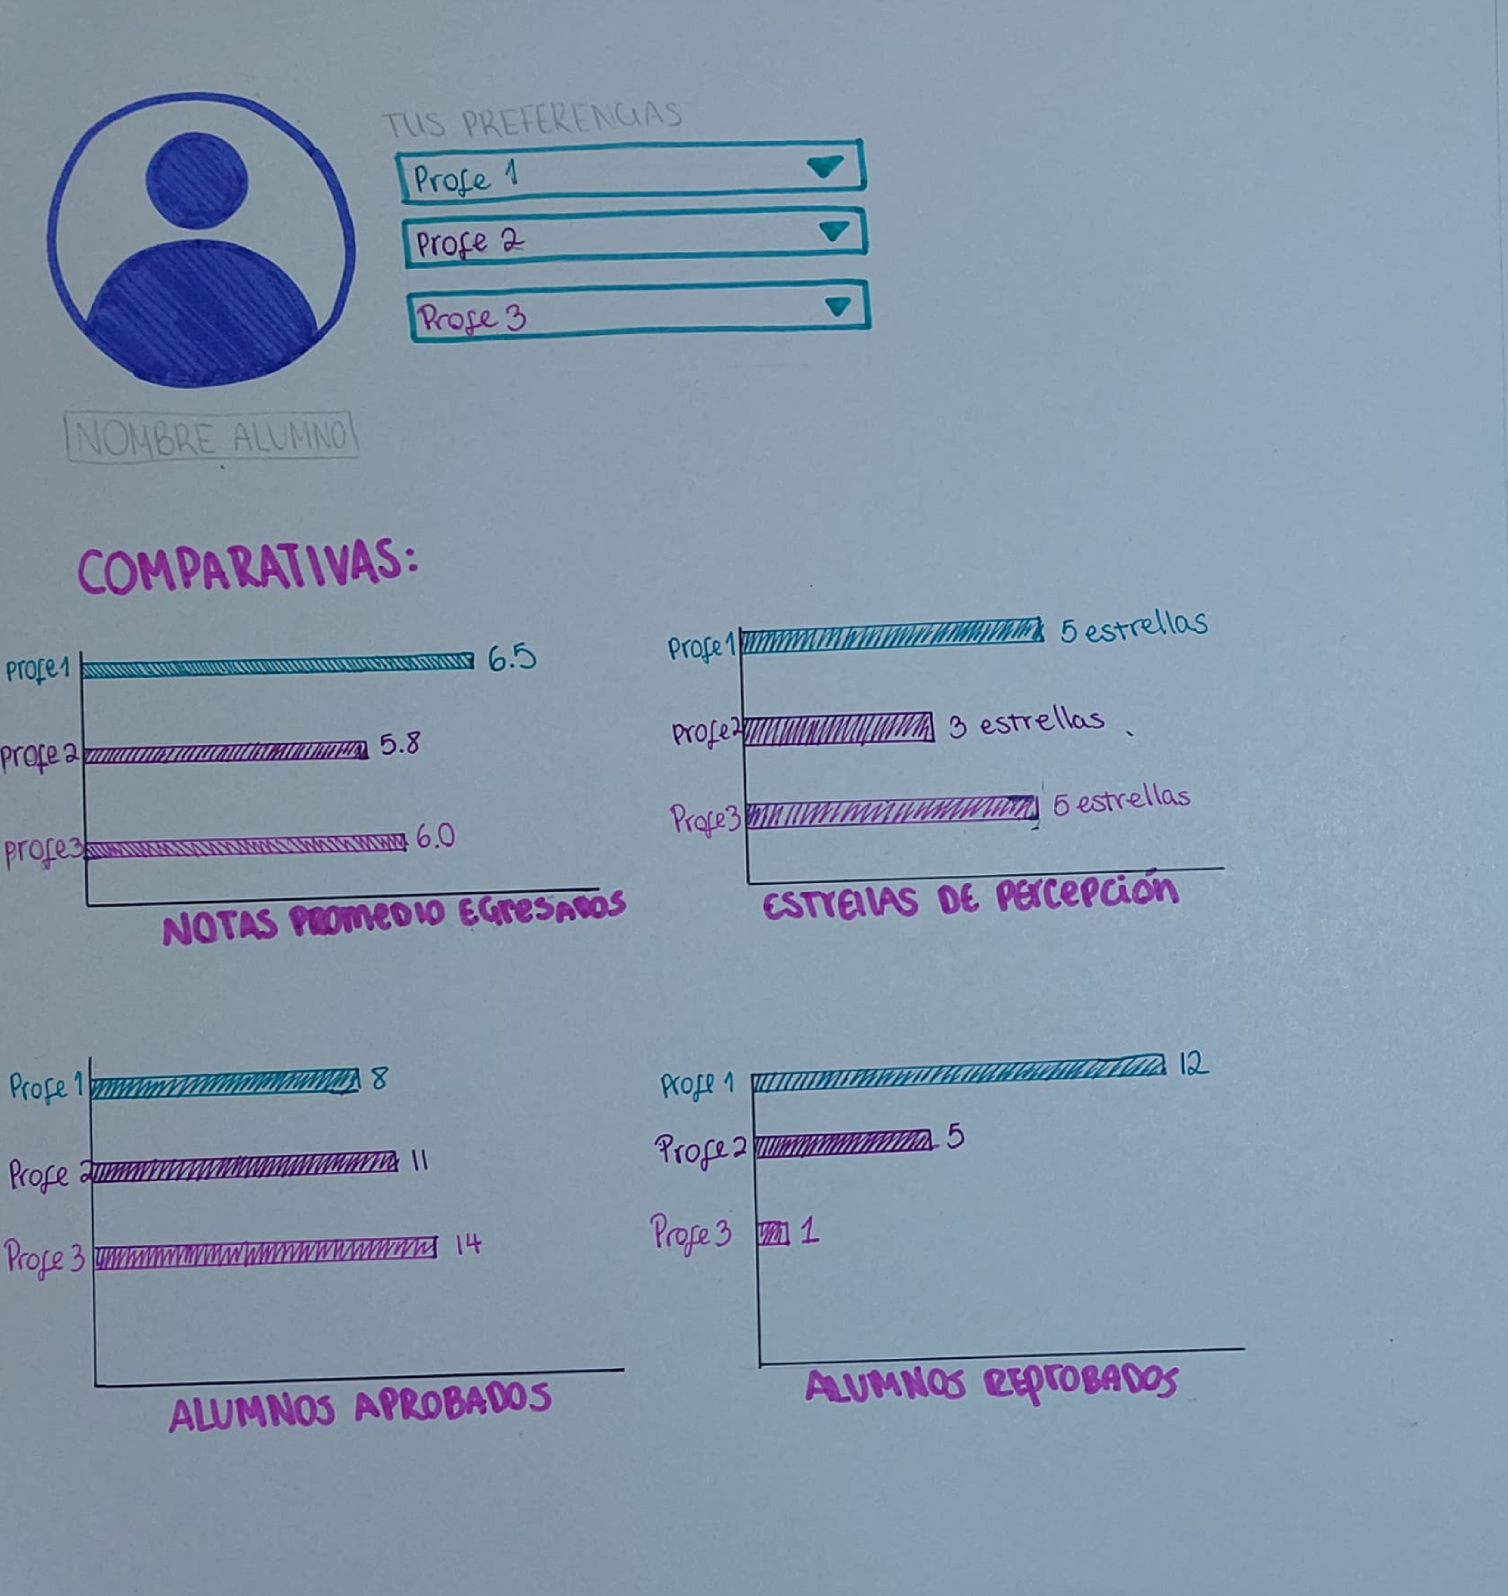 TUS PREFERENCIAS
Profe 1
Profe 2
Profe 3
NOMBRE ALUMNO
COMPARATIVAS:
profe 1 6.5
profe 2 5.8
profe 3 6.0
NOTAS PROMEDIO EGRESADOS
Profe 1 5 estrellas
profe 2 3 estrellas
Profe 3 5 estrellas
ESTRELLAS DE PERCEPCIÓN
Profe 1 8
Profe 2 11
Profe 3 14
ALUMNOS APROBADOS
profe 1 12
Profe 2 5
Profe 3 1
ALUMNOS REPROBADOS